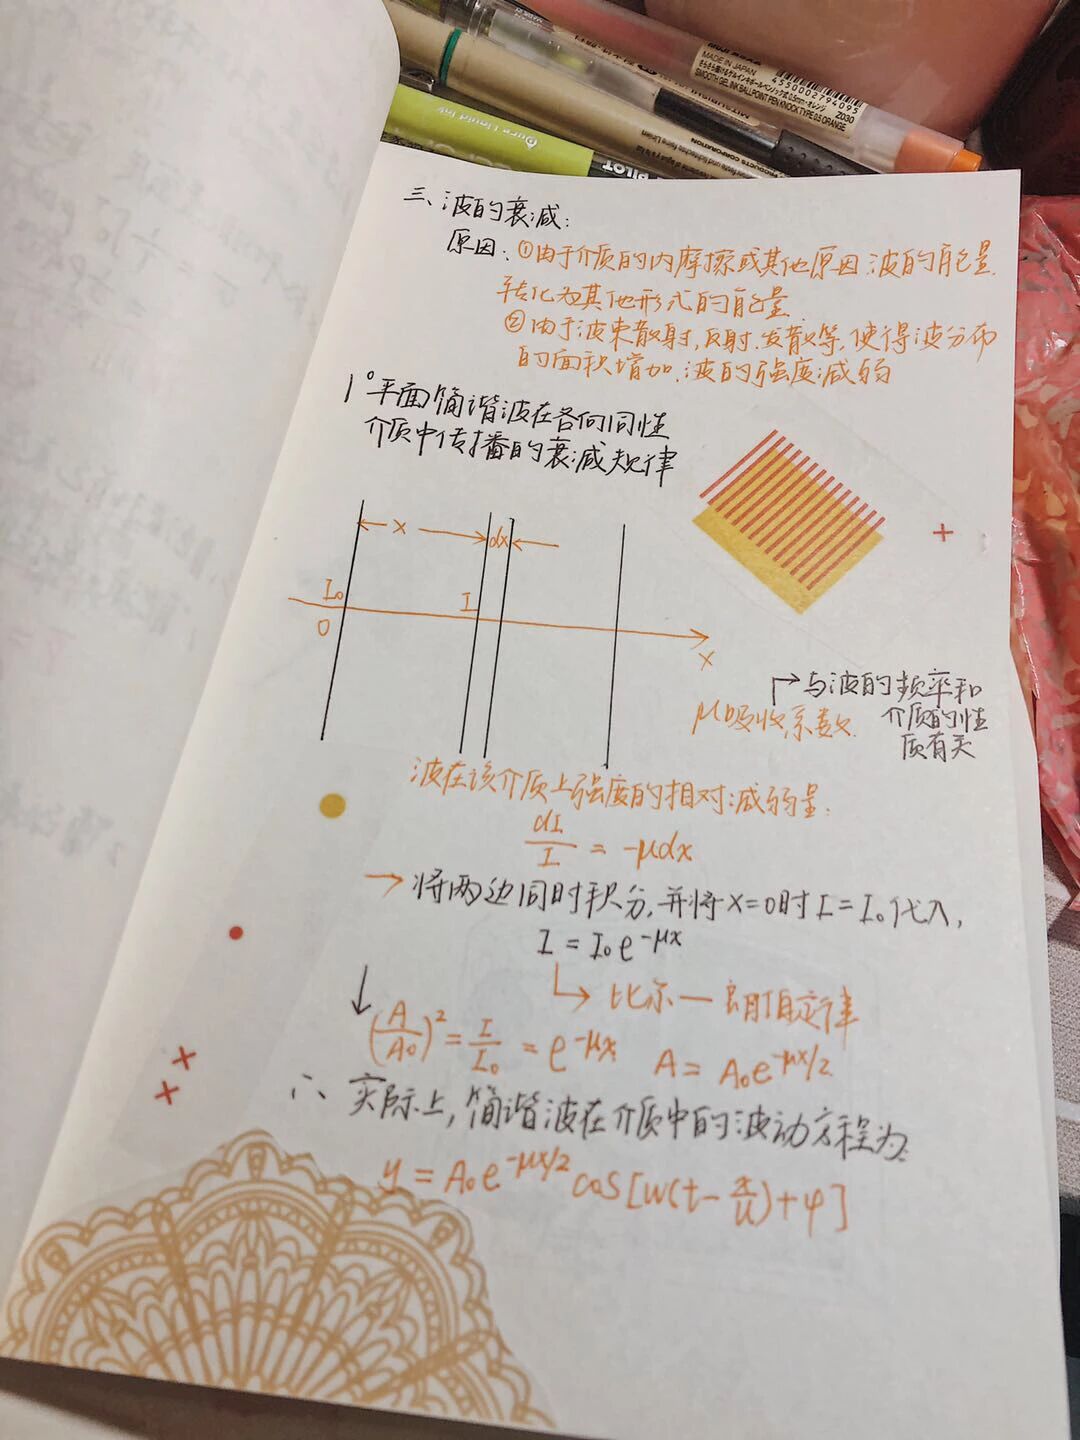 MADE IN JAPAN
4550002794095
SMOOTH GEL INK BALLPOINT PEN KNOCK TYPE 0.5 ORANGE
Z030
Pure Liquid Ink
PILOT
三、波的衰减:
原因: ①由于介质的内摩擦或其他原因波的能量
转化为其他形式的能量
②由于波束散射,反射.发散等,使得波分布
的面积增加.波的强度减弱
1°平面简谐波在各向同性
介质中传播的衰减规律
x dx
I₀ I
O x
μ吸收系数. →与波的频率和
介质的性
质有关
波在该介质上强度的相对减弱量:
dI/I = -μdx
→将两边同时积分,并将x=0时I=I₀代入,
I = I₀e^-μx
↓ ↳比尔一朗伯定律
(A/A₀)² = I/I₀ = e^-μx A = A₀e^-μx/2
∴、实际上,简谐波在介质中的波动方程为:
y = A₀e^-μx/2 cos[w(t-x/u)+φ]